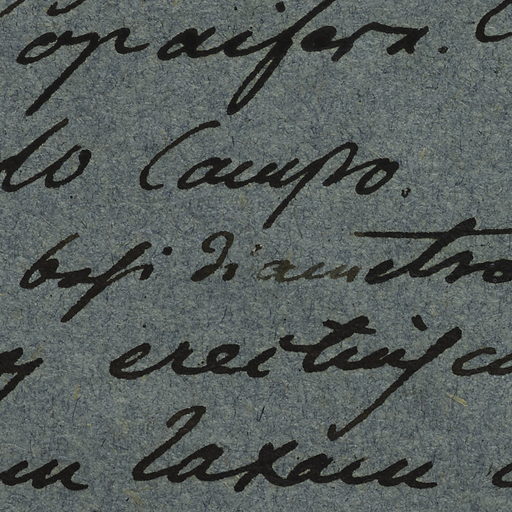 opaifera.
do Campo.
basi diametro
erectiusc
laxam